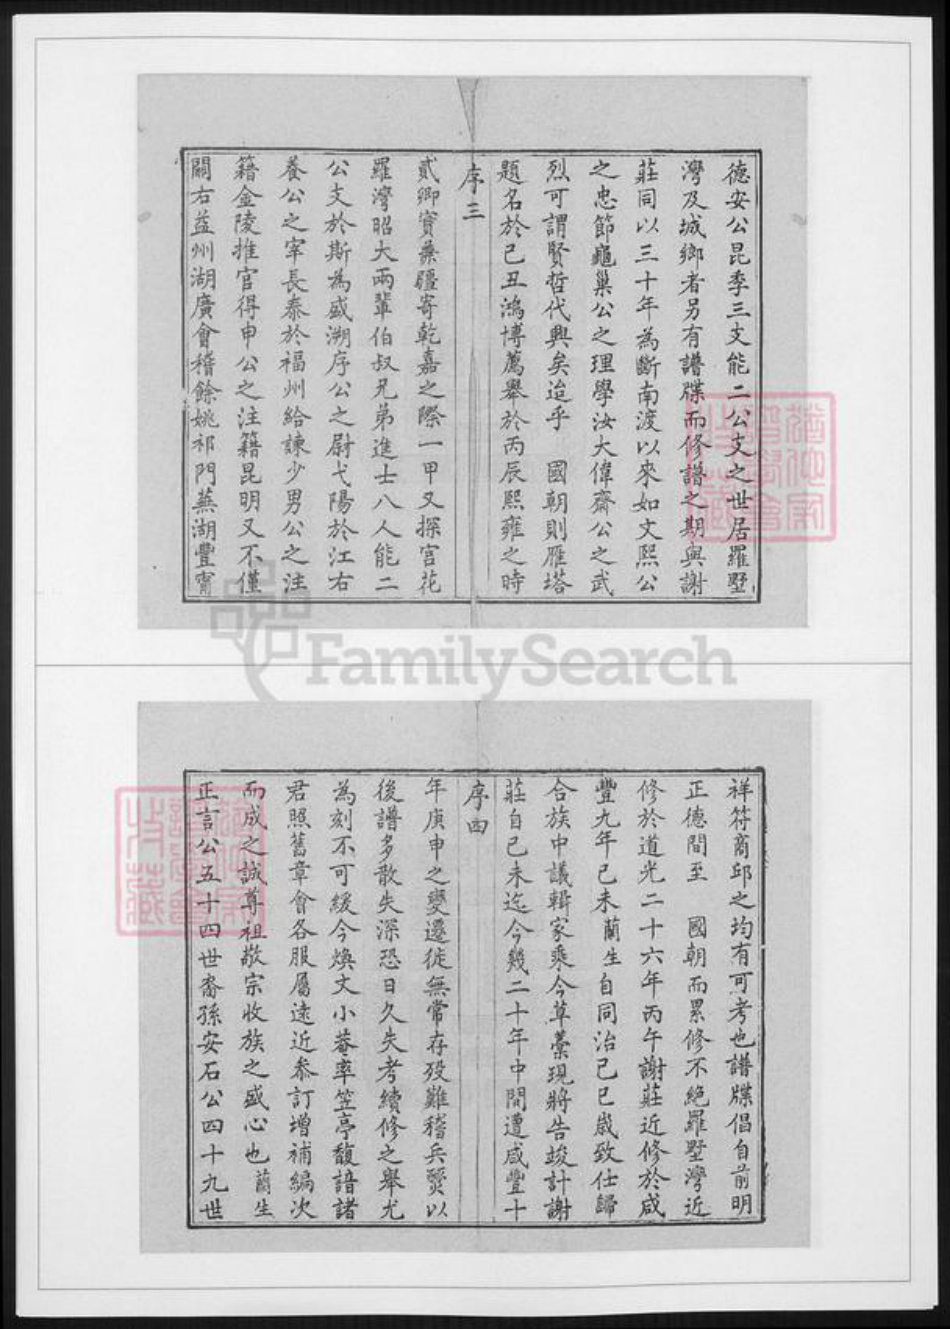 德安公昆季三支能二公支之世居羅墅
灣及城鄉者另有譜牒而修譜之期與謝
莊同以三十年為斷南渡以來如文熙公
之忠節龜巢公之理學汝大偉齋公之武
烈可謂賢哲代興矣迨乎 國朝則雁塔
題名於己丑鴻博薦舉於丙辰熙雍之時
序三
貳卿寶藥疆寄乾嘉之際一甲又探宮花
羅灣昭大兩輩伯叔兄弟進士八人能二
公支於斯為盛溯序公之尉弋陽於江右
養公之宰長泰於福州給諫少男公之注
籍金陵推官得申公之注籍昆明又不僅
關右益州湖廣會稽餘姚祁門蕪湖豐甯
祥符商邱之均有可考也譜牒倡自前明
正德間至 國朝而累修不絕羅墅灣近
修於道光二十六年丙午謝莊近修於咸
豐九年己未蘭生自同治己巳歲致仕歸
合族中議輯家乘今草藁現將告竣計謝
莊自己未迄今幾二十年中間遭咸豐十
序四
年庚申之變遷徙無常存歿難稽兵燹以
後譜多散失深恐日久失考續修之舉尤
為刻不可緩今煥文小菴率笠亭馥諳諸
君照舊章會各服屬遠近叅訂增補編次
而成之誠尊祖敬宗收族之盛心也蘭生
正言公五十四世裔孫安石公四十九世
FamilySearch